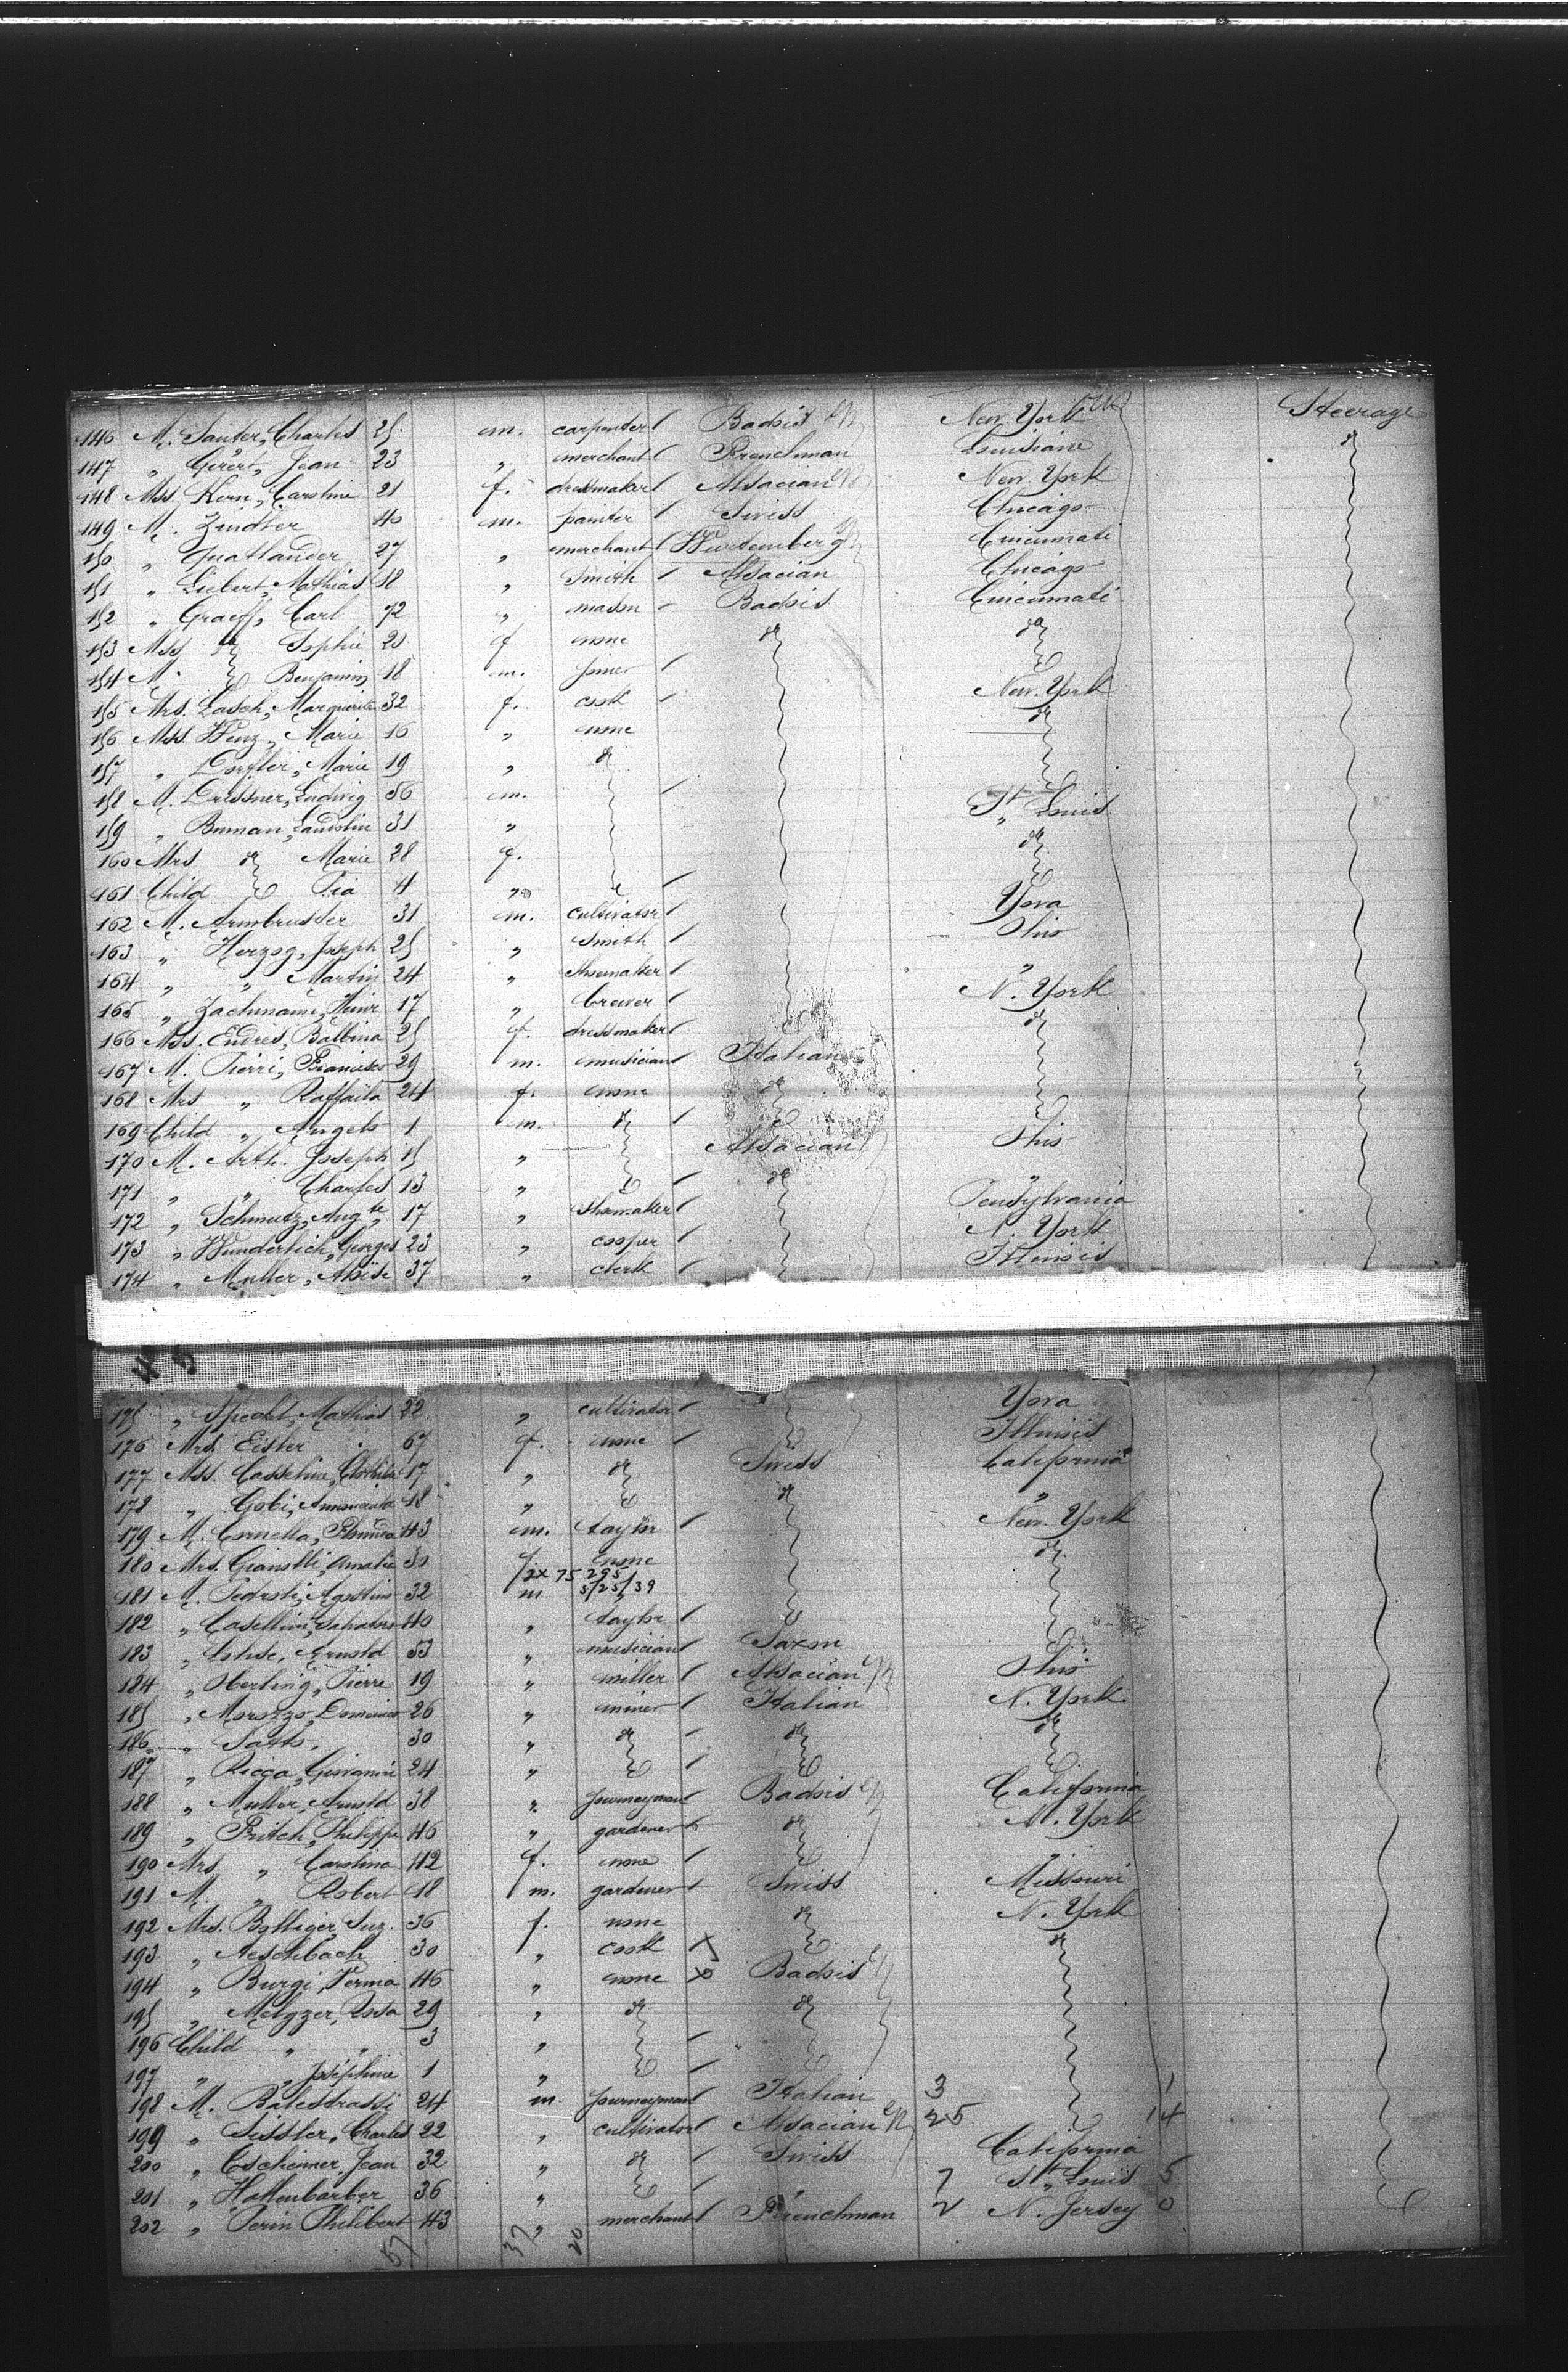 146 M. Sauter, Charles 25 m. carpenter Badois New York Steerage
147 „ Gérert, Jean 23 „ merchant Frenchman Louisiane do
148 Mss. Kern, Caroline 21 f. dressmaker Alsacian New York
149 M. Zindler 40 m. painter Swiss Chicago
150 „ Quatlander 27 „ merchant Wurtemberg Cincinnati
151 „ Liebert, Mathias 18 „ Smith Alsacian Chicago
152 „ Graeff, Carl 72 „ mason Badois Cincinnati
153 Mss do Sophie 21 f none do do
154 M. Benjamin 18 m. joiner
155 Mrs. Lasch, Marguerite 32 f. cook New York
156 Mss. Wenz, Marie 16 „ none do
157 „ Dorfler, Marie 19 „ do
158 M. Drissner, Ludwig 56 m.
159 „ Buman, Landolin 31 „ St. Louis
160 Mrs do Marie 28 f. do
161 Child Pia 4 „
162 M. Armbruster 31 m. cultivator Yova
163 „ Herzog, Joseph 25 „ Smith Ohio
164 „ „ Martin 24 „ Shoemaker „
165 „ Zachmann, Heinr 17 „ brewer N. York
166 Mss. Endres, Balbina 25 f. dressmaker do
167 M. Pierri, Francisco 29 m. musician Italian
168 Mrs „ Raffaila 24 f. none do
169 Child „ Angelo 1 m. do
170 M. Arth. Joseph 15 „ Alsacian Ohio
171 „ „ Charles 13 „ do „
172 „ Schmutz, Augte 17 „ Shoemaker Pensylvania
173 „ Wunderlich, Georges 23 „ cooper N. York
174 „ Muller, Aloïse 37 „ clerk Illinois
175 „ Specht, Mathias 22 „ cultivator Yova
176 Mrs. Eisler 67 f. none Illinois
177 Mss. Casseline, Clothilde 17 „ do Swiss California
178 „ Gobi, Annunciata 18 „ do „
179 M. Cornella, 43 m. taylor New York
180 Mrs. Gianolli, Amalia 30 f. none do
2x 75 295
181 M. Pedroli, Agostino 32 m 5/25/39
182 „ Casellini, Salvatore 40 „ taylor
183 „ Lohse, Arnold 53 „ musician Saxon
184 „ Herling, Pierre 19 „ miller Alsacian Ohio
185 „ Morozzo, Dominico 26 „ miner Italian N. York
186 „ Satto. 30 „ do do do
187 „ Ricca, Giovanni 24 „
188 „ Muller, Arnold 38 „ journeyman Badois California
189 „ Fritch, Philippe 46 „ gardener do N. York
190 Mrs „ Carolina 42 f. none
191 M. „ Robert 18 m. gardener Swiss Missouri
192 Mrs. Bolliger, Suz. 36 f. none do N. York
193 „ Aeschbach 30 „ cook do
194 „ Burgi, Verma 46 „ none Badois
195 „ Metyzer, Rosa 29 „ do do
196 Child „ „ 3 „
197 „ „ Joséphine 1 „
198 M. Balestrassi 24 m. journeyman Italian 3 1
199 „ Sissler, Charles 22 „ cultivator Alsacian 25 14
200 „ Tscheimer, Jean 32 „ do Swiss California
201 „ Hallenbarber 36 „ „ 7 St. Louis 5
202 „ Perin Philibert 43 „ merchant Frenchman 2 N. Jersey 0
57 37 20